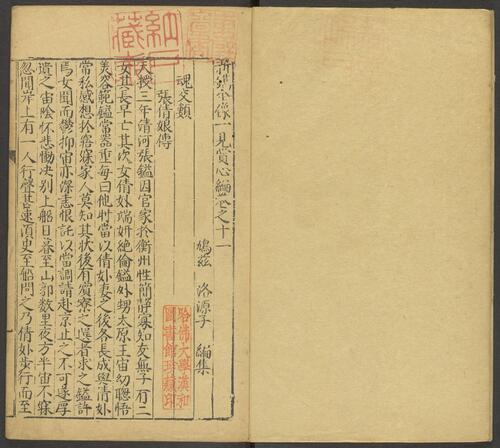 新鐫全像一見賞心編卷之十一
鳩茲 洛源子 編集
魂交類
張倩娘傳
天授三年清河張鎰因官家於衡州性簡靜寡知友無子有二
女其長早亡其次女倩娘端妍絕倫鑑外甥太原王宙幼聰悟
美容範鎰嘗器重每曰他時當以倩娘妻之後各長成與倩娘
常私感想於寤寐家人莫知其狀後有賓寮之選者求之鎰許
焉女聞而鬱抑宙亦深恚恨託以當調請赴京止之不可遂厚
遺之宙陰怀悲慟決別上船日暮至山郭數里夜方半宙不寐
忽聞岸上有一人行聲甚速須史至船問之乃倩娘步行而至
哈佛大學漢和
圖書館珍藏印